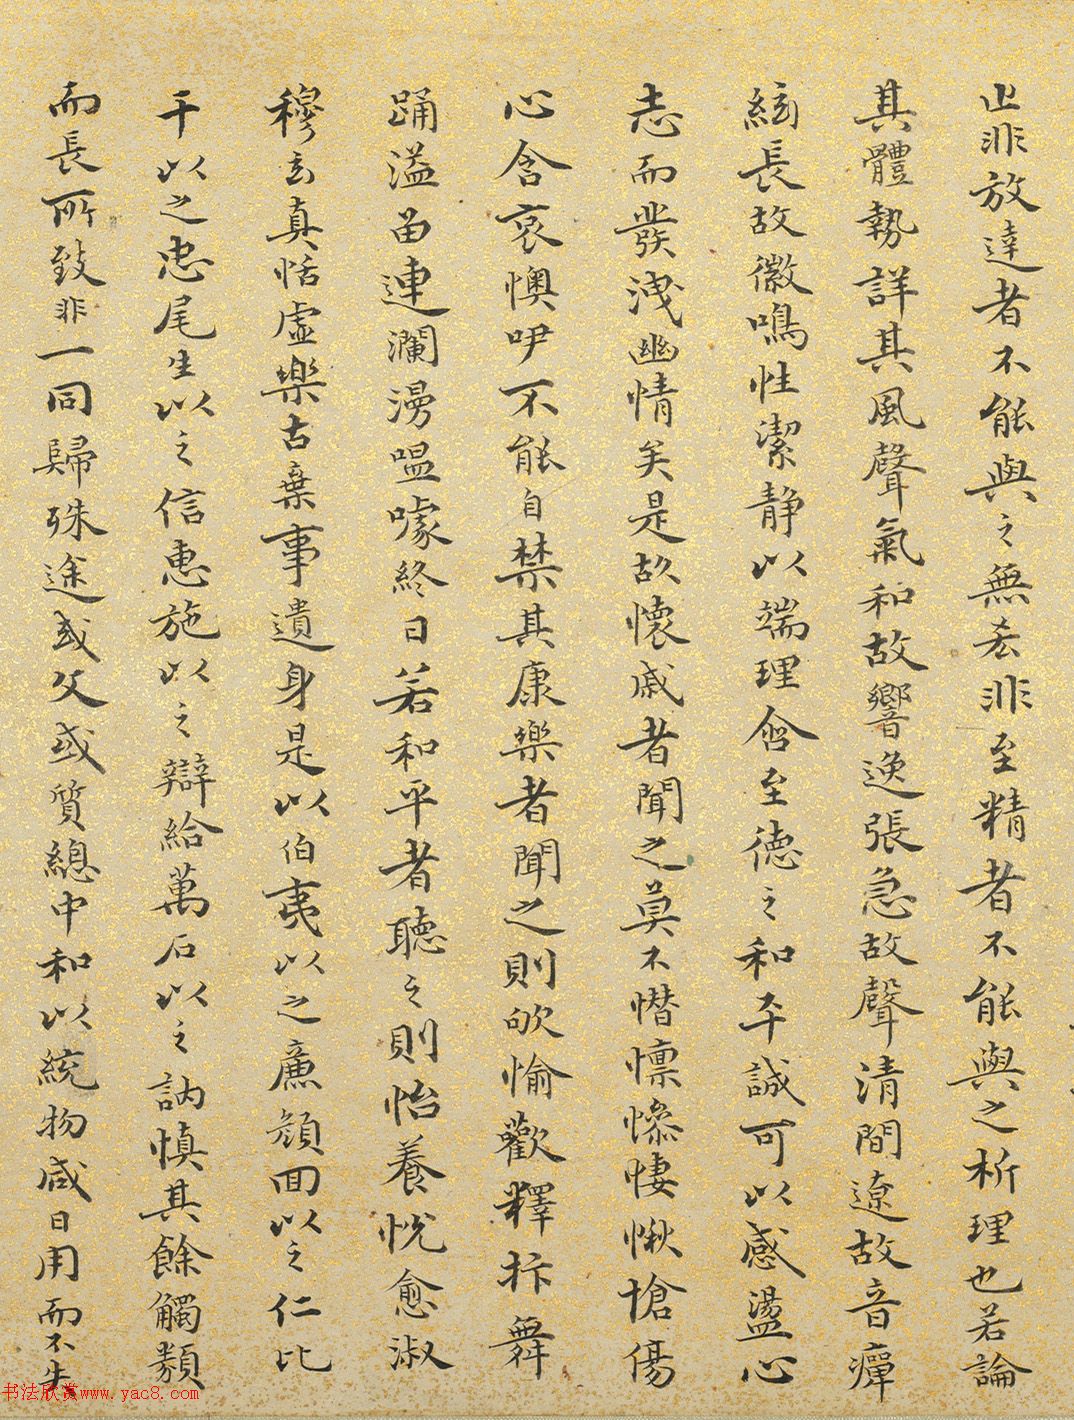 止非放達者不能與之無吝非至精者不能與之析理也若論
其體勢詳其風聲氣和故響逸張急故聲清閒遼故音痺
絃長故徽鳴性潔静以端理含至德之和平誠可以感盪心
志而發洩幽情矣是故懷戚者聞之莫不憯懍慘悽愀愴傷
心含哀懊咿不能自禁其康樂者聞之則欨愉歡釋抃舞
踊溢留連瀾漫嗢噱終日若和平者聽之則怡養悅愈淑
穆玄真恬虛樂古棄事遺身是以伯夷以之廉顏回以之仁比
干以之忠尾生以之信惠施以之辯給萬石以之訥慎其餘觸類
而長所致非一同歸殊途或文或質總中和以統物咸日用而不失
书法欣赏www.yac8.com